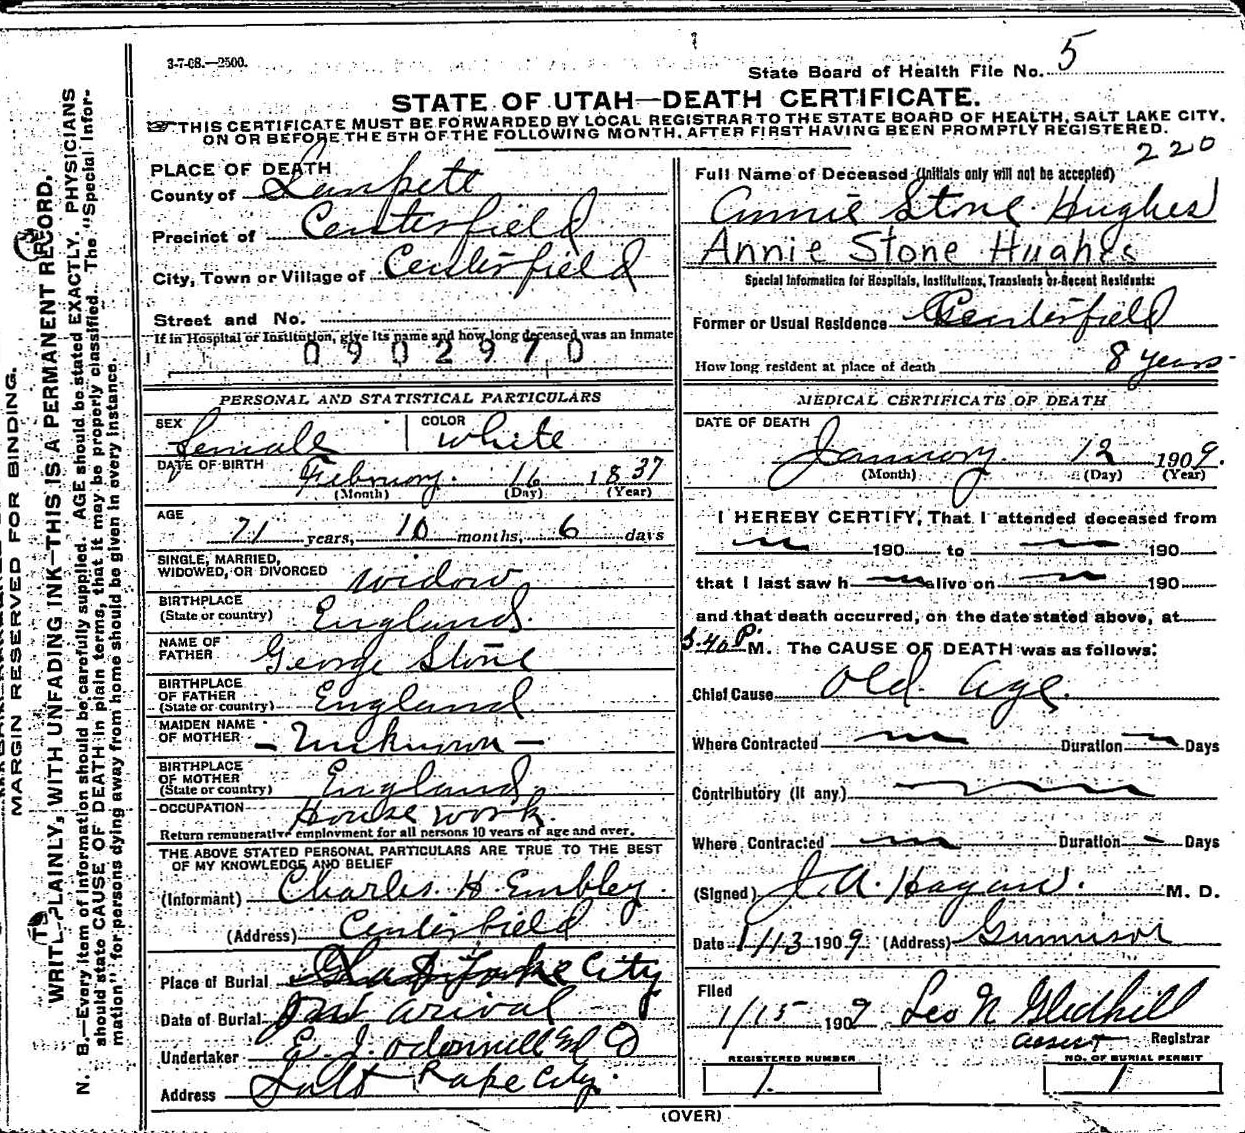 3-7-08.—2500.
State Board of Health File No. 5
STATE OF UTAH—DEATH CERTIFICATE.
THIS CERTIFICATE MUST BE FORWARDED BY LOCAL REGISTRAR TO THE STATE BOARD OF HEALTH, SALT LAKE CITY,
ON OR BEFORE THE 5TH OF THE FOLLOWING MONTH, AFTER FIRST HAVING BEEN PROMPTLY REGISTERED.
220
PLACE OF DEATH
County of Sanpete
Precinct of Centerfield
City, Town or Village of Centerfield
Street and No.
If in Hospital or Institution, give its name and how long deceased was an inmate
0902970
PERSONAL AND STATISTICAL PARTICULARS
SEX female COLOR white
DATE OF BIRTH February 16 1837
(Month) (Day) (Year)
AGE
71 years, 10 months, 6 days
SINGLE, MARRIED,
WIDOWED, OR DIVORCED widow
BIRTHPLACE
(State or country) England.
NAME OF
FATHER George Stone
BIRTHPLACE
OF FATHER
(State or country) England
MAIDEN NAME
OF MOTHER — Unknown —
BIRTHPLACE
OF MOTHER
(State or country) England
OCCUPATION House work.
Return remunerative employment for all persons 10 years of age and over.
THE ABOVE STATED PERSONAL PARTICULARS ARE TRUE TO THE BEST
OF MY KNOWLEDGE AND BELIEF
(Informant) Charles. H. Embley.
(Address) Centerfield
Place of Burial City
Date of Burial arival
Undertaker E. J. Odonnell & Co
Address Salt Lake City.
Full Name of Deceased (Initials only will not be accepted)
Annie Stone Hughes
Annie Stone Hughes
Special Information for Hospitals, Institutions, Transients or Recent Residents:
Former or Usual Residence Centerfield
How long resident at place of death 8 years
MEDICAL CERTIFICATE OF DEATH
DATE OF DEATH
January 12 1909.
(Month) (Day) (Year)
I HEREBY CERTIFY, That I attended deceased from
190 to 190
that I last saw h alive on 190
and that death occurred, on the date stated above, at
5.40 P. M. The CAUSE OF DEATH was as follows:
Chief Cause Old age.
Where Contracted Duration Days
Contributory (If any.)
Where Contracted Duration Days
(Signed) J. A. Hagan. M. D.
Date 1/13 1909 (Address) Gunnison
Filed
1/15 1909 Leo N Gledhill
assist Registrar
REGISTERED NUMBER
1.
NO. OF BURIAL PERMIT
1
(OVER)
MARGIN RESERVED FOR BINDING.
WRITE PLAINLY, WITH UNFADING INK—THIS IS A PERMANENT RECORD.
N. B.—Every item of information should be carefully supplied. AGE should be stated EXACTLY. PHYSICIANS
should state CAUSE OF DEATH in plain terms, that it may be properly classified. The "Special Infor-
mation" for persons dying away from home should be given in every instance.